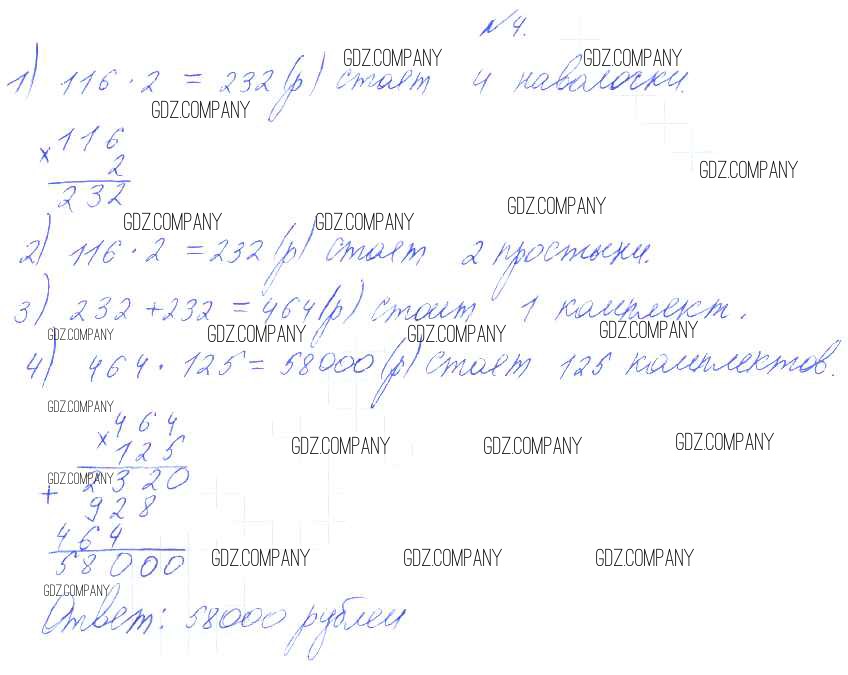 №4.
GDZ.COMPANY GDZ.COMPANY
1) 116 · 2 = 232 (р) стоят 4 наволочки.
GDZ.COMPANY
× 116
2
GDZ.COMPANY
232
GDZ.COMPANY
GDZ.COMPANY GDZ.COMPANY
2) 116 · 2 = 232 (р) стоят 2 простыни.
3) 232 + 232 = 464 (р) стоит 1 комплект.
GDZ.COMPANY GDZ.COMPANY GDZ.COMPANY GDZ.COMPANY
4) 464 · 125 = 58000 (р) стоят 125 комплектов.
GDZ.COMPANY
464
× 125
GDZ.COMPANY GDZ.COMPANY GDZ.COMPANY
GDZ.COMPANY
+ 2320
928
464
58000
GDZ.COMPANY GDZ.COMPANY GDZ.COMPANY
GDZ.COMPANY
Ответ: 58000 рублей